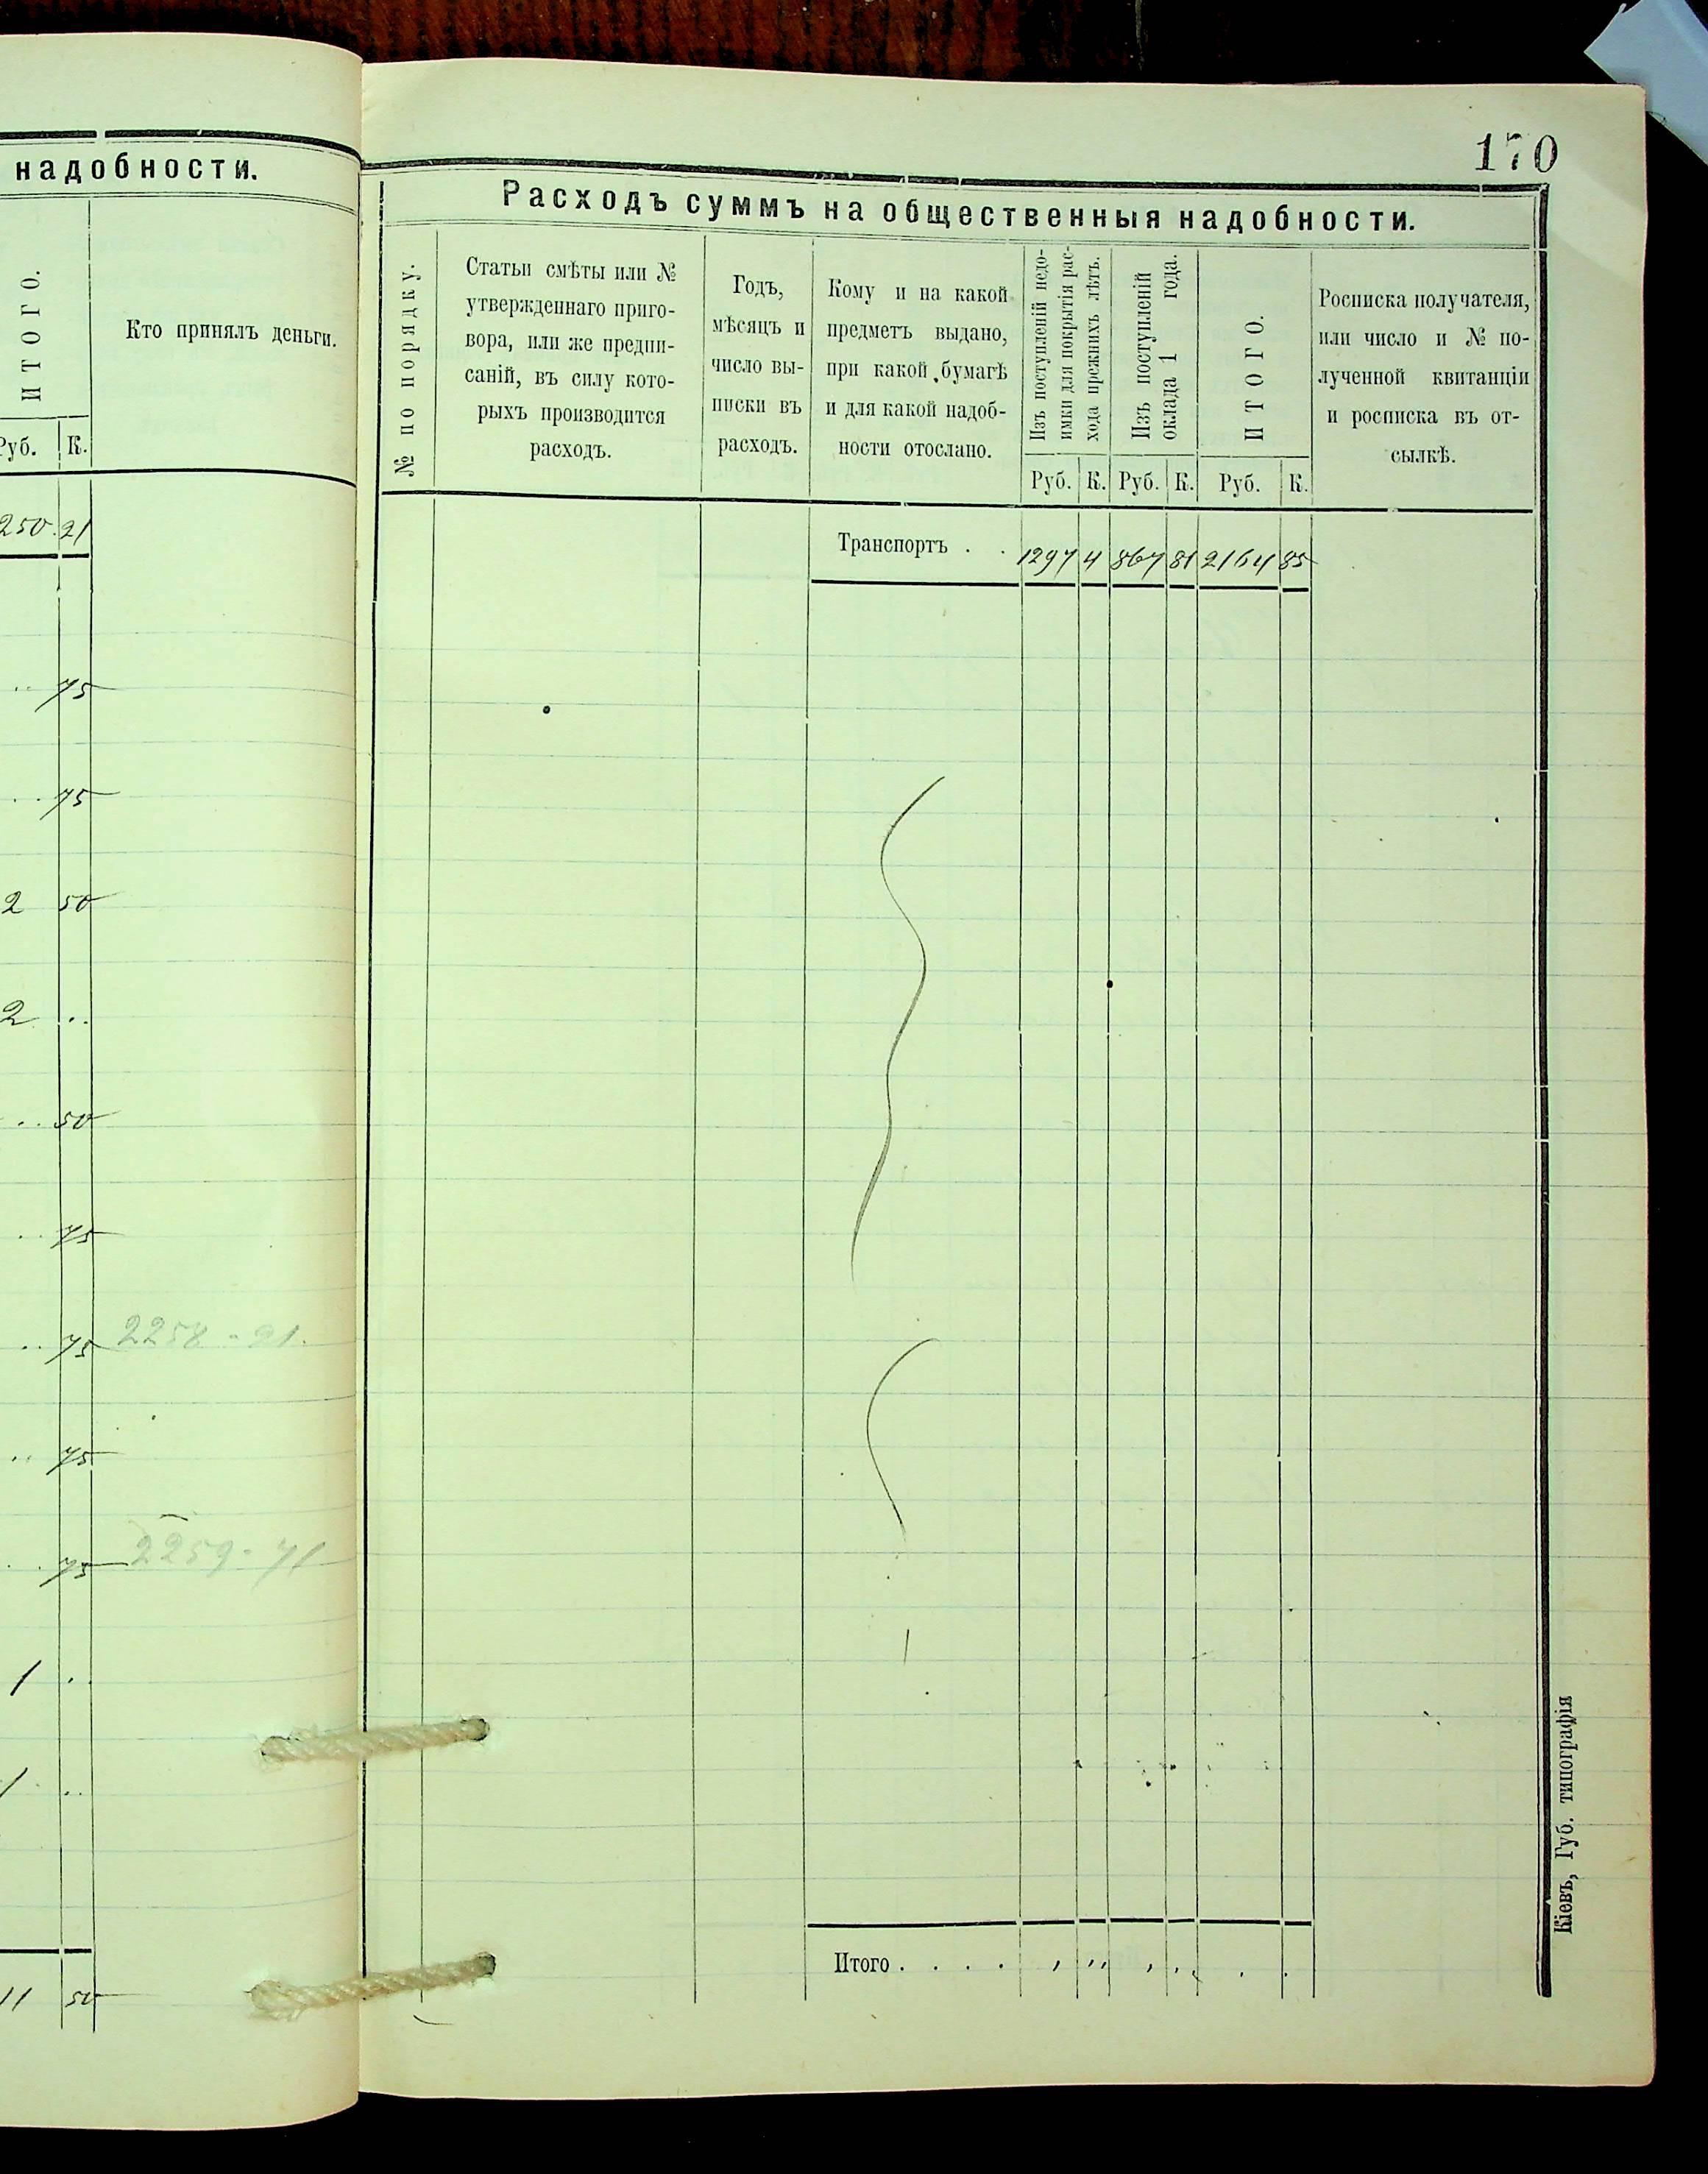 надобности.
ИТОГО.
Кто принялъ деньги.
Руб. К.
250. 21
.. 75
.. 75
2 50
2 ..
.. 50
.. 75
.. 75 2258 - 21.
.. 75
.. 75 2259 - 71
1 ..
1 ..
11 50
170
Расходъ суммъ на общественныя надобности.
№ по порядку.
Статьи смѣты или №
утвержденнаго приго-
вора, или же предпи-
саній, въ силу кото-
рыхъ производится
расходъ.
Годъ,
мѣсяцъ и
число вы-
писки въ
расходъ.
Кому и на какой
предметъ выдано,
при какой бумагѣ
и для какой надоб-
ности отослано.
Изъ поступленій недо-
имки для покрытія рас-
хода прежнихъ лѣтъ.
Изъ поступленій
оклада 1 года.
ИТОГО.
Росписка получателя,
или число и № по-
лученной квитанціи
и росписка въ от-
сылкѣ.
Руб. К. Руб. К. Руб. К.
Транспортъ . . 1297 4 867 81 2164 85
Итого . . . .
Кіевъ, Губ. типографія